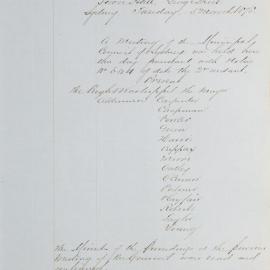 Town Hall, 
Sydney Tuesday 5 March 187
A Meeting of the Municipal
Council of Sydney was held here
this day pursuant with Notice
No of date the 2nd instant.
Present
The Right Worshipful the Mayor
Aldermen Carpenter
Chapman
Fowler
Green
Hanson
Kippax
Merriman
Oatley
O'Connor
Palmer
Playfair
Roberts
Taylor
Young
The Minutes of the Proceedings at the previous
Meeting of the Council were read and